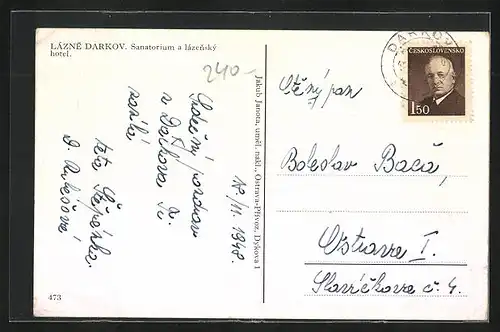 LÁZNĚ DARKOV. Sanatorium a lázeňský
hotel.
240-
Srdečný pozdrav
z Darkova Ti
zasílá
teta Štěpánka.
18./11. 1948.
473
Jakub Janota, uměl. nakl., Ostrava-Přívoz, Dykova 1
DARKOV
ČESKOSLOVENSKO
1.50
pan
Boleslav Bača,
Ostrava I.
Slavíčkova č. 4.